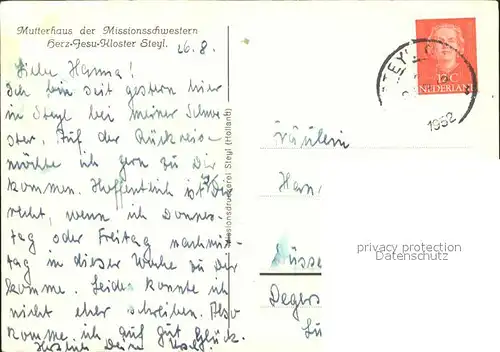 Mutterhaus der Missionsschwestern
Herz-Jesu-Kloster Steyl.
26.8.
Liebe Hanna!
Ich bin seit gestern hier
in Steyl bei meiner Schwe-
ster. Auf der Rückreise
möchte ich gern zu Dir
kommen. Hoffentlich ist es Dir
recht, wenn ich Donners-
tag oder Freitag nachmit-
tag in dieser Woche zu Dir
komme. Leider konnte ich
nicht eher schreiben. Also
komme ich auf gut Glück.
Herzlich Deine
Missionsdruckerei Steyl (Holland)
12 C
NEDERLAND
STEYL
1952
Fräulein
Han
Düsse
Degers
privacy protection
Datenschutz